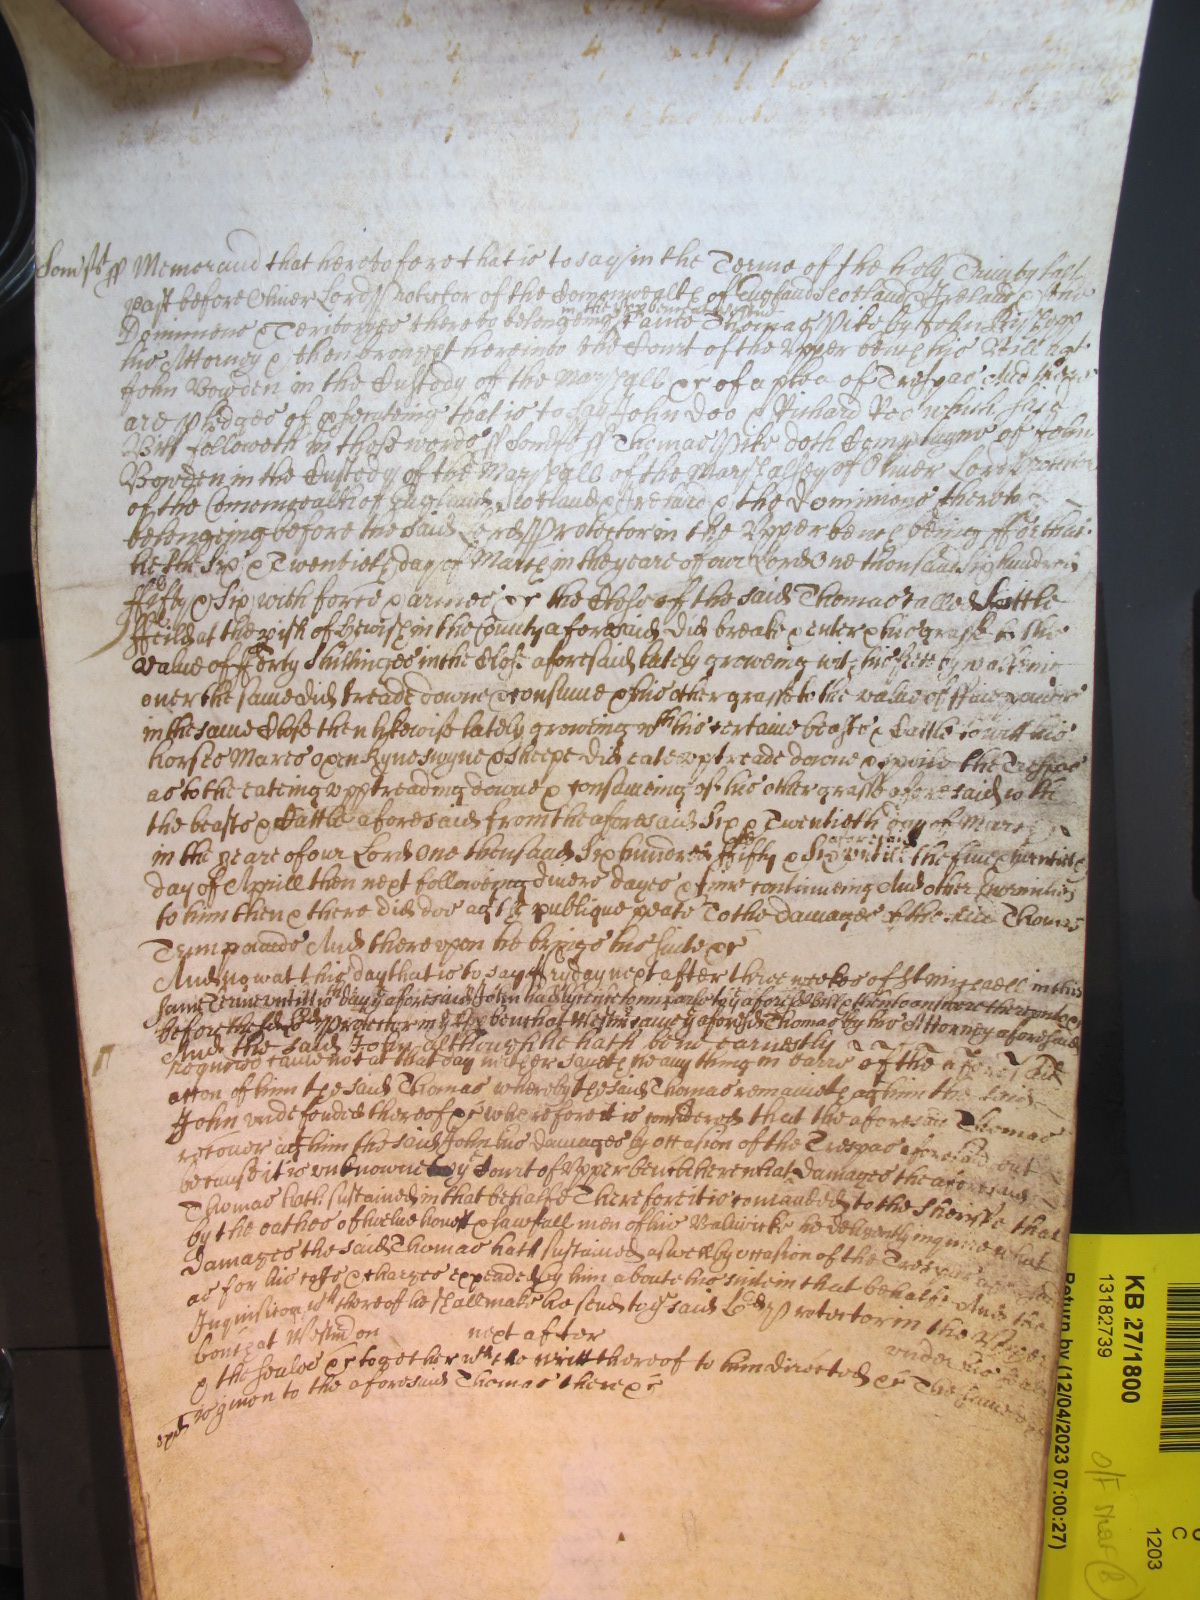 Somst ss Memorand that heretofore that is to say in the Terme of the holy Trinity last
past before Oliver Lord Protector of the Comonwealth of England Scotland & Ireland & the
Dominions & Territoryes thereto belonging in the Upper bench came Thomas Pike by John
his Attorney & then brought here into the Court of the Upper bench his Bill agt
John Bowden in the Custody of the Marshall &c of a plea of Trespas And there
are pledges of prosecuteing that is to say John Doo & Richard Roo which said
Bill followeth in these words ss Somst ss Thomas Pike doth Complayne of John
Bowden in the Custody of the Marshall of the Marshalsey of Oliver Lord Protector
of the Comonwealth of England Scotland & Ireland & the Dominions thereto
belonging before the said Lord Protector in the Upper bench being ffor that
he the Six & Twentieth day of March in the yeare of our Lord One thousand six hundred
ffifty & Six with force & armes &c the Close of the said Thomas called Little
ffeild at the pish of in the County aforesaid did breake & enter & his grasse to the
value of fforty Shillinges in the Close aforesaid lately groweing with his feete by walking
over the same did treade downe & consume & his other grasse to the value of ffive pounds
in the same Close then likewise lately growing wth his certaine beasts & Cattle to witt his
horses Mares oxen Kyne swyne & sheepe did eate upp treade downe & the Trespas
as to the eateing upp treading downe & consumeing of his other grasse aforesaid with
the beasts & Cattle aforesaid from the aforesaid Six & Twentieth day of March
in the yeare of our Lord One thousand Six hundred ffifty & Six aforesaid untill the five & twentieth
day of Aprill then next following divers dayes & times continueing And other Enormities
to him then & there did doe agt the publique peace To the damages of the said Thomas
Tenn pounds And thereupon he brings his suite &c
And now at this day that is to say ffryday next after three weekes of St Michaell in this
same Terme untill wch day ye aforesaid John had lycence to imparle to ye aforesd Bill & then to answere thereunto &c
before the sd Ld Protector in ye Upp bench at Westm came ye aforesd Thomas by his Attorney aforesaid
And the said John although he hath bene earnestly
Required came not at that day neither sayeth he any thing in barre of the aforesaid
accon of him the said Thomas whereby the said Thomas remaineth agt him the said
John undefended thereof &c wherefore it is considered that the aforesaid Thomas
recover agt him the said John his damages by occasion of the Trespas aforesaid but
because it is unknowne to ye Court of Upper bench here what damages the aforesaid
Thomas hath sustained in that behalfe Therefore it is comanded to the Sheriffe that
by the oathes of twelve honest & lawfull men of his Baliwicke he deligently inquire what
damages the said Thomas hath sustained aswell by occasion of the Trespas aforesaid
as for his costs & charges expended by him about his suite in that behalfe And the
Inquisicon wch thereof he shall make he send to ye said Ld Protector in the Upper
bench at Westm on next after under his seale
& the seales &c together wth the writt thereof to him directed &c The same
is given to the aforesaid Thomas there &c
KB 27/1800
13182739
Return by (12/04/2023 07:00:27)
C
1203